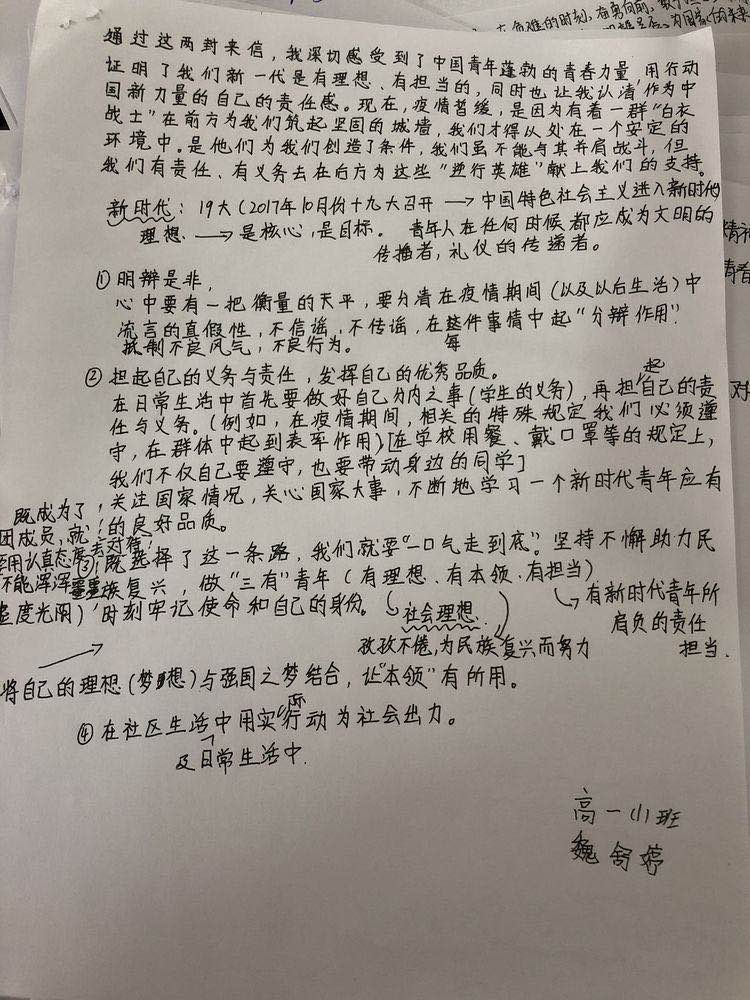 负难的时刻,奋勇向前,
通过这两封来信,我深切感受到了中国青年蓬勃的青春力量,用行动
证明了我们新一代是有理想、有担当的,同时也让我认清作为中
国新力量的自己的责任感。现在,疫情暂缓,是因为有着一群“白衣
战士”在前方为我们筑起坚固的城墙,我们才得以处在一个安定的
环境中。是他们为我们创造了条件,我们虽不能与其并肩战斗,但
我们有责任、有义务去在后方为这些“逆行英雄”献上我们的支持。
新时代:19大(2017年10月份十九大召开 → 中国特色社会主义进入新时代)
理想 → 是核心,是目标。 青年人在任何时候都应成为文明的
传播者,礼仪的传递者。
① 明辩是非,
心中要有一把衡量的天平,要分清在疫情期间(以及以后生活)中
流言的真假性,不信谣,不传谣,在整件事情中起“分辩作用”
每
抵制不良风气,不良行为。
② 担起自己的义务与责任,发挥自己的优秀品质。
在日常生活中首先要做好自己分内之事(学生的义务),再担起自己的责
任与义务。(例如,在疫情期间,相关的特殊规定我们必须遵
守,在群体中起到表率作用)[在学校用餐、戴口罩等的规定上,
我们不仅自己要遵守,也要带动身边的同学]
关注国家情况,关心国家大事,不断地学习一个新时代青年应有
的良好品质。
既成为了
团成员,就
要用认真态度去对待!
不能浑浑噩噩
虚度光阴)
③ 既选择了这一条路,我们就要“一口气走到底”。坚持不懈助力民
族复兴,做“三有”青年(有理想、有本领、有担当)
时刻牢记使命和自己的身份。
社会理想
→ 有新时代青年所
肩负的责任
担当.
孜孜不倦,为民族复兴而努力
将自己的理想(梦想)与强国之梦结合,让“本领”有所用。
④ 在社区生活中用实际行动为社会出力。
及日常生活中.
高一(1)班
魏舒婷